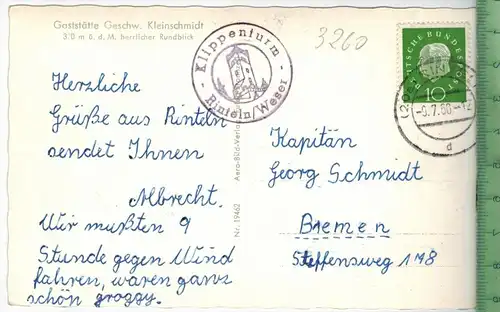 Gaststätte Geschw. Kleinschmidt
3?0 m ü. d. M. herrlicher Rundblick
Klippenturm
- Rinteln/Weser -
3260
DEUTSCHE BUNDESPOST
10
-6.7.60-12
d
Herzliche
Grüße aus Rinteln
sendet Ihnen
Albrecht.
Wir mußten 9
Stunde gegen Wind
fahren, waren ganz
schön groggy.
Aero-Bild-Verla
Nr. 19462
Kapitän
Georg Schmidt
Bremen
Steffensweg 178